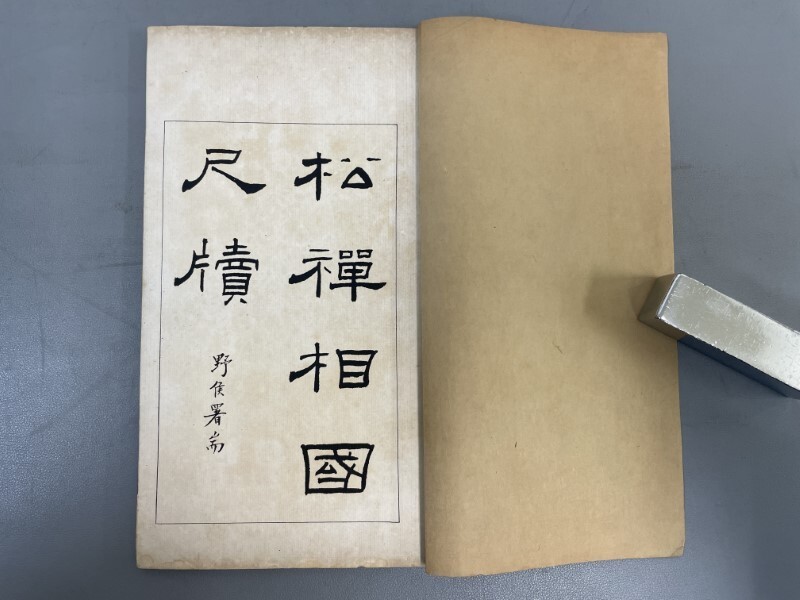 松禪相國
尺牘
野侯署耑